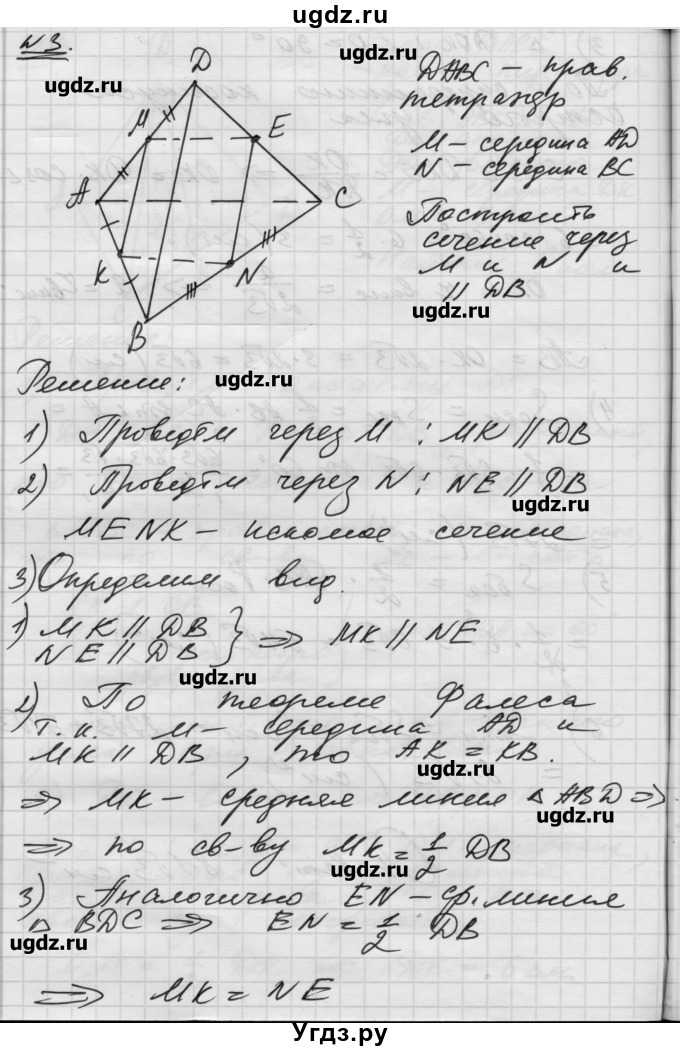 ugdz.ru
№3.
ugdz.ru
ugdz.ru
D
M
E
A
C
K
N
B
DABC – прав.
тетраэдр
M – середина AD
N – середина BC
ugdz.ru
Построить
сечение через
M и N и
∥ DB
ugdz.ru
Решение:
ugdz.ru
1) Проведём через M : MK ∥ DB
2) Проведём через N : NE ∥ DB
ugdz.ru
MENK – искомое сечение
3) Определим вид.
1) MK ∥ DB
NE ∥ DB } ⇒ MK ∥ NE
ugdz.ru
2) По теореме Фалеса
т.к. M – середина AD и
MK ∥ DB, то AK = KB.
ugdz.ru
⇒ MK – средняя линия △ ABD ⇒
ugdz.ru
⇒ по св-ву MK = 1/2 DB
ugdz.ru
3) Аналогично EN – ср. линия
△ BDC ⇒ EN = 1/2 DB
ugdz.ru
⇒ MK = NE
Угдз.ру